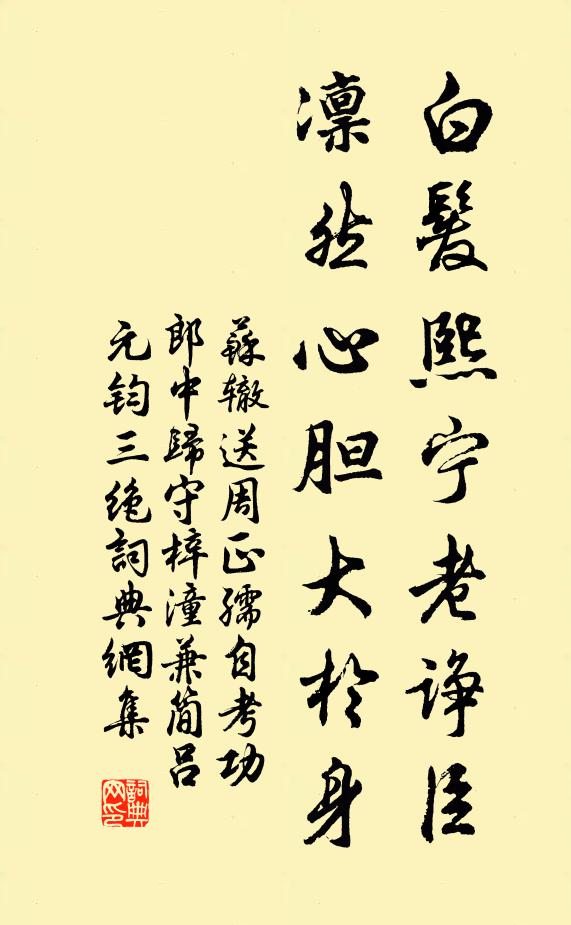 白髮熙宁老诤臣
凛然心胆大於身
蘇辙送周正孺自考功
郎中歸守梓潼兼简吕
元钧三绝詞典網集
詞典网印